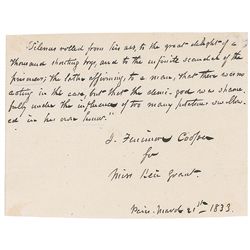 "Silenus rolled from his ass, to the great delight of a
thousand shouting boys, and to the infinite scandal of the
prisoner; the latter affirming, to a man, that there was no
acting in the case, but that the demi-god was shame-
fully under the influence of too many potations swallow-
ed in his own honor."
J. Fenimore Cooper
for
Miss Grant
Paris. March 21st 1833.